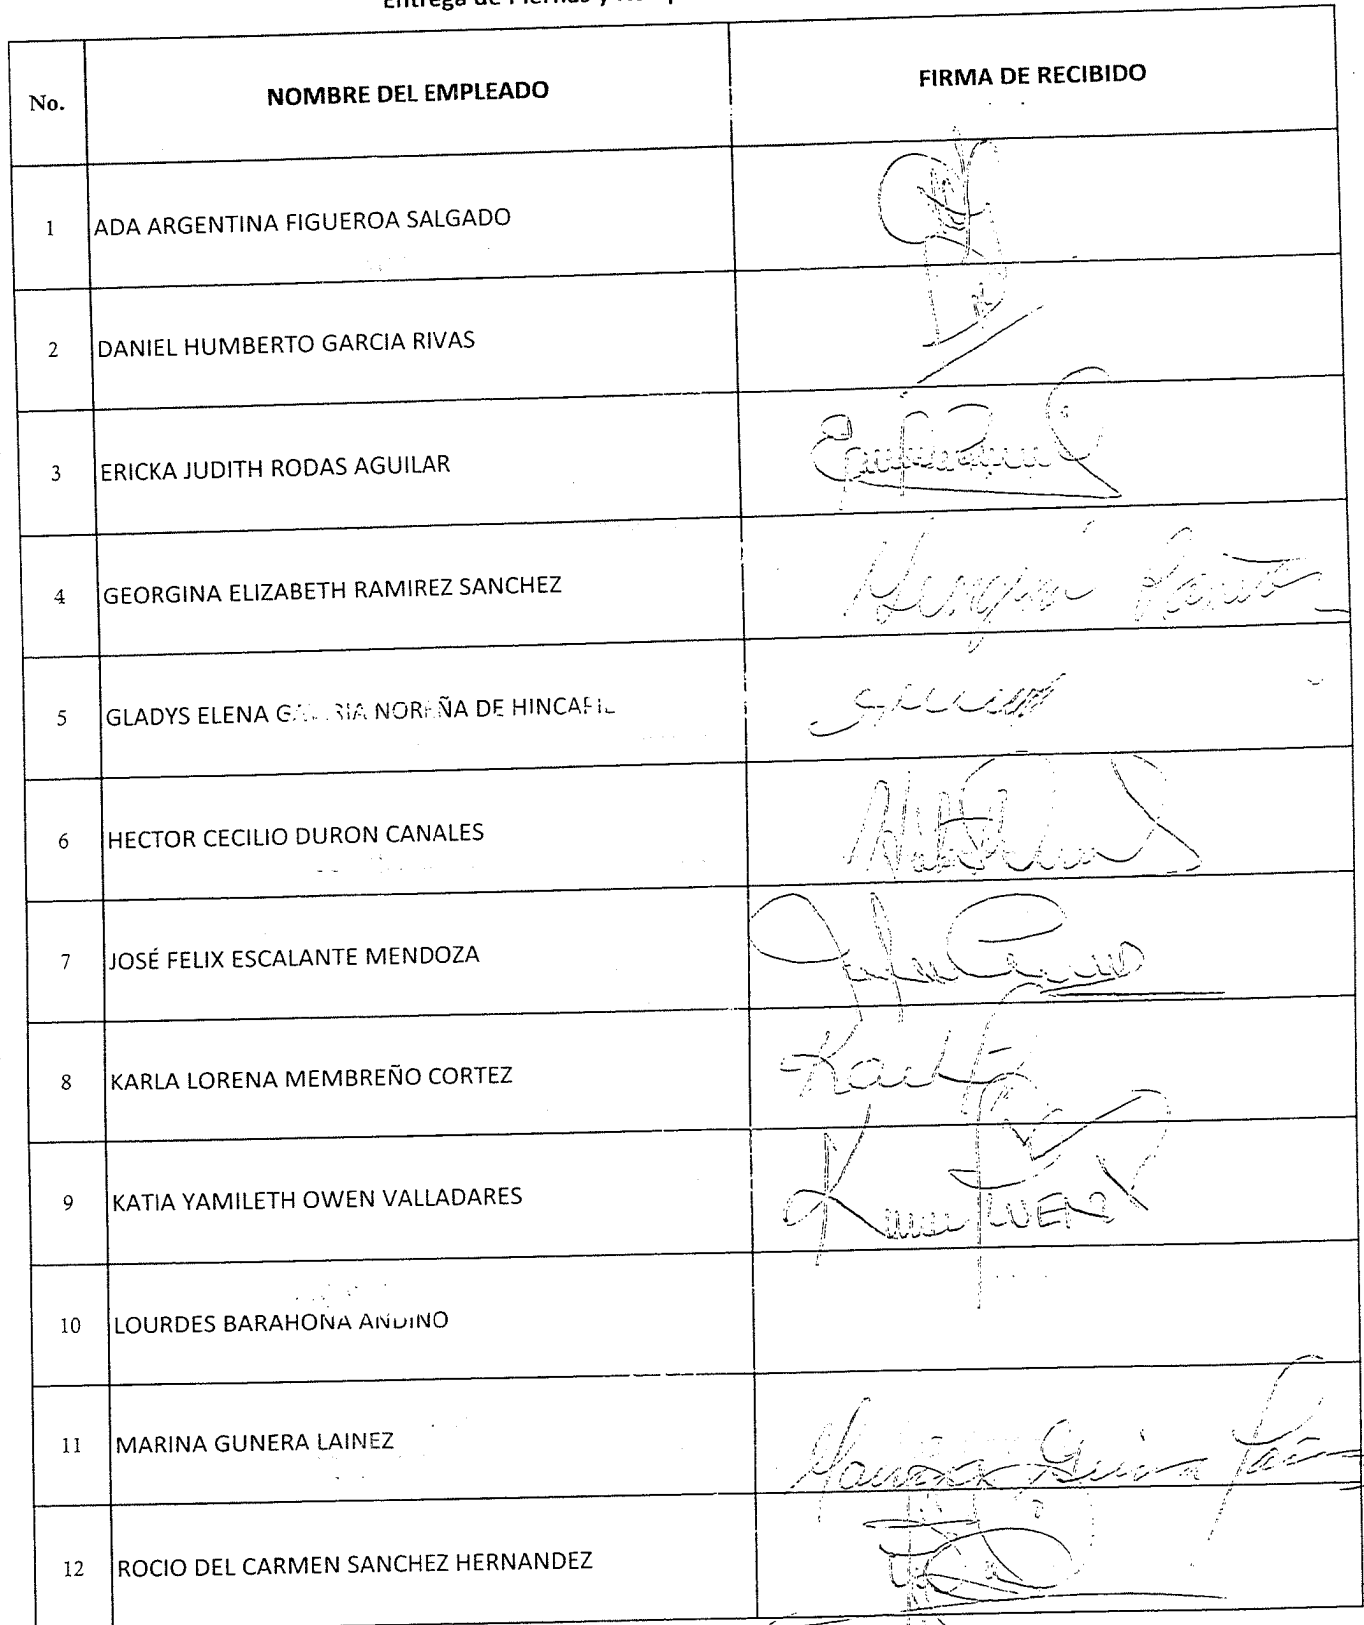 Entrega de Piernas y
No. NOMBRE DEL EMPLEADO FIRMA DE RECIBIDO
1 ADA ARGENTINA FIGUEROA SALGADO
2 DANIEL HUMBERTO GARCIA RIVAS
3 ERICKA JUDITH RODAS AGUILAR
4 GEORGINA ELIZABETH RAMIREZ SANCHEZ
5 GLADYS ELENA NOREÑA DE HINCAPIE
6 HECTOR CECILIO DURON CANALES
7 JOSÉ FELIX ESCALANTE MENDOZA
8 KARLA LORENA MEMBREÑO CORTEZ
9 KATIA YAMILETH OWEN VALLADARES
10 LOURDES BARAHONA ANDINO
11 MARINA GUNERA LAINEZ
12 ROCIO DEL CARMEN SANCHEZ HERNANDEZ